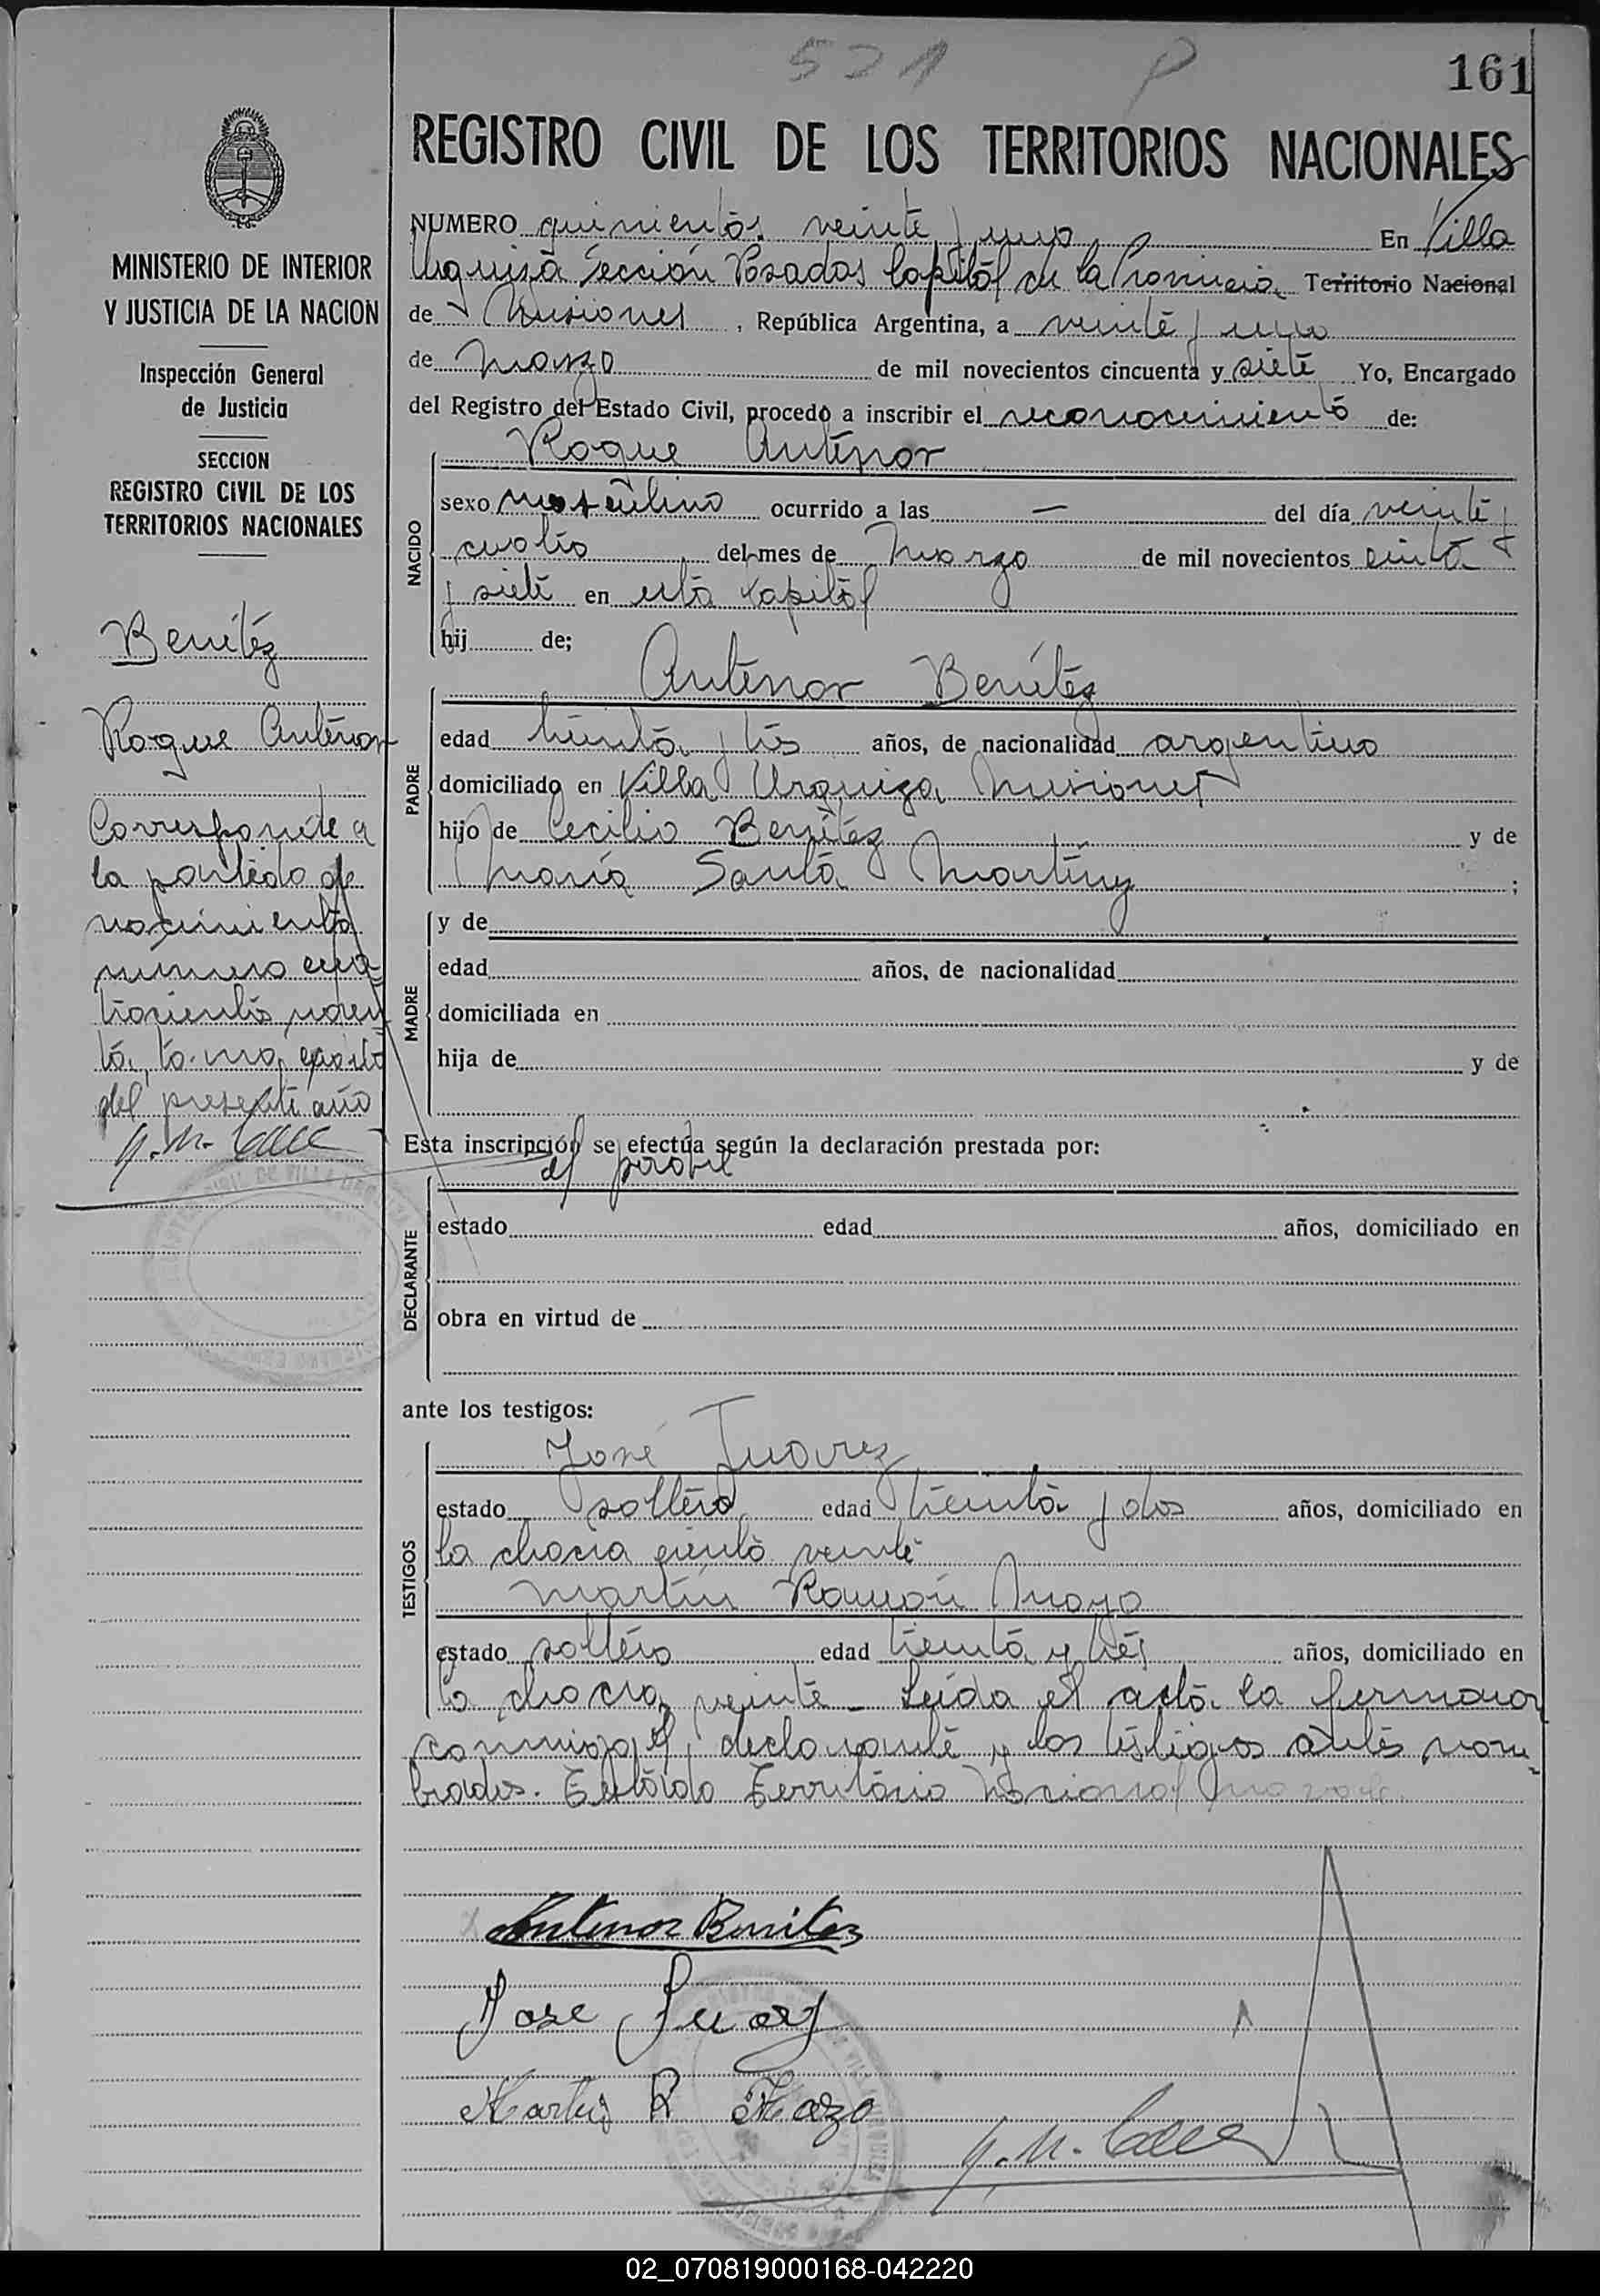 521 P
161
REGISTRO CIVIL DE LOS TERRITORIOS NACIONALES
MINISTERIO DE INTERIOR
Y JUSTICIA DE LA NACION
Inspección General
de Justicia
SECCION
REGISTRO CIVIL DE LOS
TERRITORIOS NACIONALES
Benítez
Roque Antenor
Corresponde a
la partida de
nacimiento
número cua
trocientos noven
ta, tomo cuarto
del presente año
NUMERO quinientos veinte y uno En Villa
Urquiza Sección Posadas Capital de la Provincia Territorio Nacional
de Misiones, República Argentina, a veinte y uno
de Marzo de mil novecientos cincuenta y siete Yo, Encargado
del Registro del Estado Civil, procedo a inscribir el reconocimiento de:
Roque Antenor
NACIDO
sexo masculino ocurrido a las — del día veinte y
cuatro del mes de Marzo de mil novecientos
y siete en esta Capital
hij de;
Antenor Benítez
PADRE
edad treinta y tres años, de nacionalidad argentino
domiciliado en Villa Urquiza Misiones
hijo de Cecilio Benítez y de
María Santa ;
y de
MADRE
edad años, de nacionalidad
domiciliada en
hija de y de
Esta inscripción se efectúa según la declaración prestada por:
el
DECLARANTE
estado edad años, domiciliado en
obra en virtud de
ante los testigos:
José Juarez
TESTIGOS
estado soltero edad treinta y dos años, domiciliado en
la chacra ciento veinte
Martín Ramón
estado soltero edad treinta y tres años, domiciliado en
la chacra veinte Leída el acta la
conmigo el declarante y los testigos antes nom-
brados. Testado Territorio Nacional no vale.
Antenor Benitez
Jose Juarz
Martin R
02_070819000168-042220